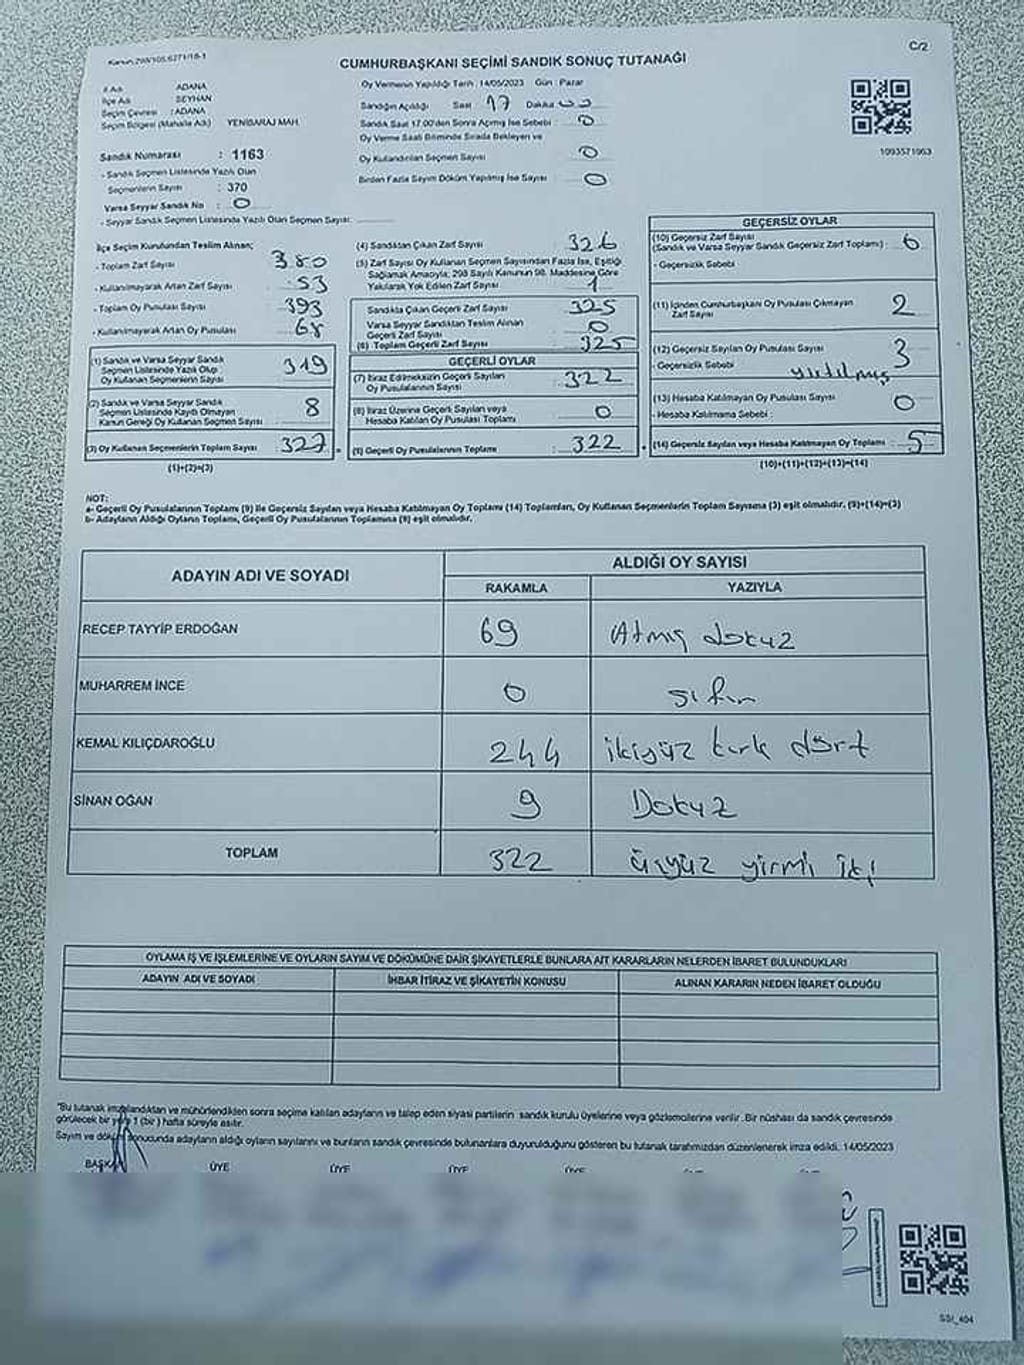 Kanun 298/105.6271/16-1
C/2
CUMHURBAŞKANI SEÇİMİ SANDIK SONUÇ TUTANAĞI
İl Adı : ADANA
İlçe Adı : SEYHAN
Seçim Çevresi : ADANA
Seçim Bölgesi (Mahalle Adı) : YENİBARAJ MAH.
Sandık Numarası : 1163
- Sandık Seçmen Listesinde Yazılı Olan
Seçmenlerin Sayısı : 370
Varsa Seyyar Sandık No : 0
- Seyyar Sandık Seçmen Listesinde Yazılı Olan Seçmen Sayısı:
Oy Vermenin Yapıldığı Tarih : 14/05/2023 Gün : Pazar
Sandığın Açıldığı Saat 17 Dakika
Sandık Saat 17.00'den Sonra Açmış İse Sebebi : 0
Oy Verme Saati Bitiminde Sırada Bekleyen ve
Oy Kullandırılan Seçmen Sayısı : 0
Birden Fazla Sayım Döküm Yapılmış İse Sayısı : 0
1093571063
İlçe Seçim Kurulundan Teslim Alınan;
- Toplam Zarf Sayısı : 380
- Kullanılmayarak Artan Zarf Sayısı : 53
- Toplam Oy Pusulası Sayısı : 393
- Kullanılmayarak Artan Oy Pusulası : 68
(1) Sandık ve Varsa Seyyar Sandık
Seçmen Listesinde Yazılı Olup
Oy Kullanan Seçmenlerin Sayısı : 319
(2) Sandık ve Varsa Seyyar Sandık
Seçmen Listesinde Kayıtlı Olmayan
Kanun Gereği Oy Kullanan Seçmen Sayısı : 8
(3) Oy Kullanan Seçmenlerin Toplam Sayısı : 327
(1)+(2)=(3)
(4) Sandıktan Çıkan Zarf Sayısı : 326
(5) Zarf Sayısı Oy Kullanan Seçmen Sayısından Fazla İse, Eşitliği
Sağlamak Amacıyla; 298 Sayılı Kanunun 98. Maddesine Göre
Yakılarak Yok Edilen Zarf Sayısı : 1
Sandıkta Çıkan Geçerli Zarf Sayısı : 325
Varsa Seyyar Sandıktan Teslim Alınan
Geçerli Zarf Sayısı : 0
(6) Toplam Geçerli Zarf Sayısı : 325
GEÇERLİ OYLAR
(7) İtiraz Edilmeksizin Geçerli Sayılan
Oy Pusulalarının Sayısı : 322
(8) İtiraz Üzerine Geçerli Sayılan veya
Hesaba Katılan Oy Pusulası Toplamı : 0
(9) Geçerli Oy Pusulalarının Toplamı : 322
GEÇERSİZ OYLAR
(10) Geçersiz Zarf Sayısı
(Sandık ve Varsa Seyyar Sandık Geçersiz Zarf Toplamı) : 6
- Geçersizlik Sebebi
(11) İçinden Cumhurbaşkanı Oy Pusulası Çıkmayan
Zarf Sayısı 2
(12) Geçersiz Sayılan Oy Pusulası Sayısı : 3
- Geçersizlik Sebebi : yırtılmış
(13) Hesaba Katılmayan Oy Pusulası Sayısı : 0
- Hesaba Katılmama Sebebi :
(14) Geçersiz Sayılan veya Hesaba Katılmayan Oy Toplamı : 5
(10)+(11)+(12)+(13)=(14)
NOT:
a- Geçerli Oy Pusulalarının Toplamı (9) ile Geçersiz Sayılan veya Hesaba Katılmayan Oy Toplamı (14) Toplamları, Oy Kullanan Seçmenlerin Toplam Sayısına (3) eşit olmalıdır. (9)+(14)=(3)
b- Adayların Aldığı Oyların Toplamı, Geçerli Oy Pusulalarının Toplamına (9) eşit olmalıdır.
ADAYIN ADI VE SOYADI
ALDIĞI OY SAYISI
RAKAMLA YAZIYLA
RECEP TAYYİP ERDOĞAN 69 Atmış dokuz
MUHARREM İNCE 0 sıfır
KEMAL KILIÇDAROĞLU 244 ikiyüz kırk dört
SİNAN OĞAN 9 Dokuz
TOPLAM 322 üçyüz yirmi iki
OYLAMA İŞ VE İŞLEMLERİNE VE OYLARIN SAYIM VE DÖKÜMÜNE DAİR ŞİKAYETLERLE BUNLARA AİT KARARLARIN NELERDEN İBARET BULUNDUKLARI
ADAYIN ADI VE SOYADI İHBAR İTİRAZ VE ŞİKAYETİN KONUSU ALINAN KARARIN NEDEN İBARET OLDUĞU
"Bu tutanak imzalandıktan ve mühürlendikten sonra seçime katılan adayların ve talep eden siyasi partilerin sandık kurulu üyelerine veya gözlemcilerine verilir. Bir nüshası da sandık çevresinde
görülecek bir yere 1 (bir) hafta süreyle asılır.
Sayım ve döküm sonucunda adayların aldığı oyların sayılarını ve bunların sandık çevresinde bulunanlara duyurulduğunu gösteren bu tutanak tarafımızdan düzenlenerek imza edildi. 14/05/2023
BAŞKAN ÜYE ÜYE ÜYE ÜYE
SSİ_404